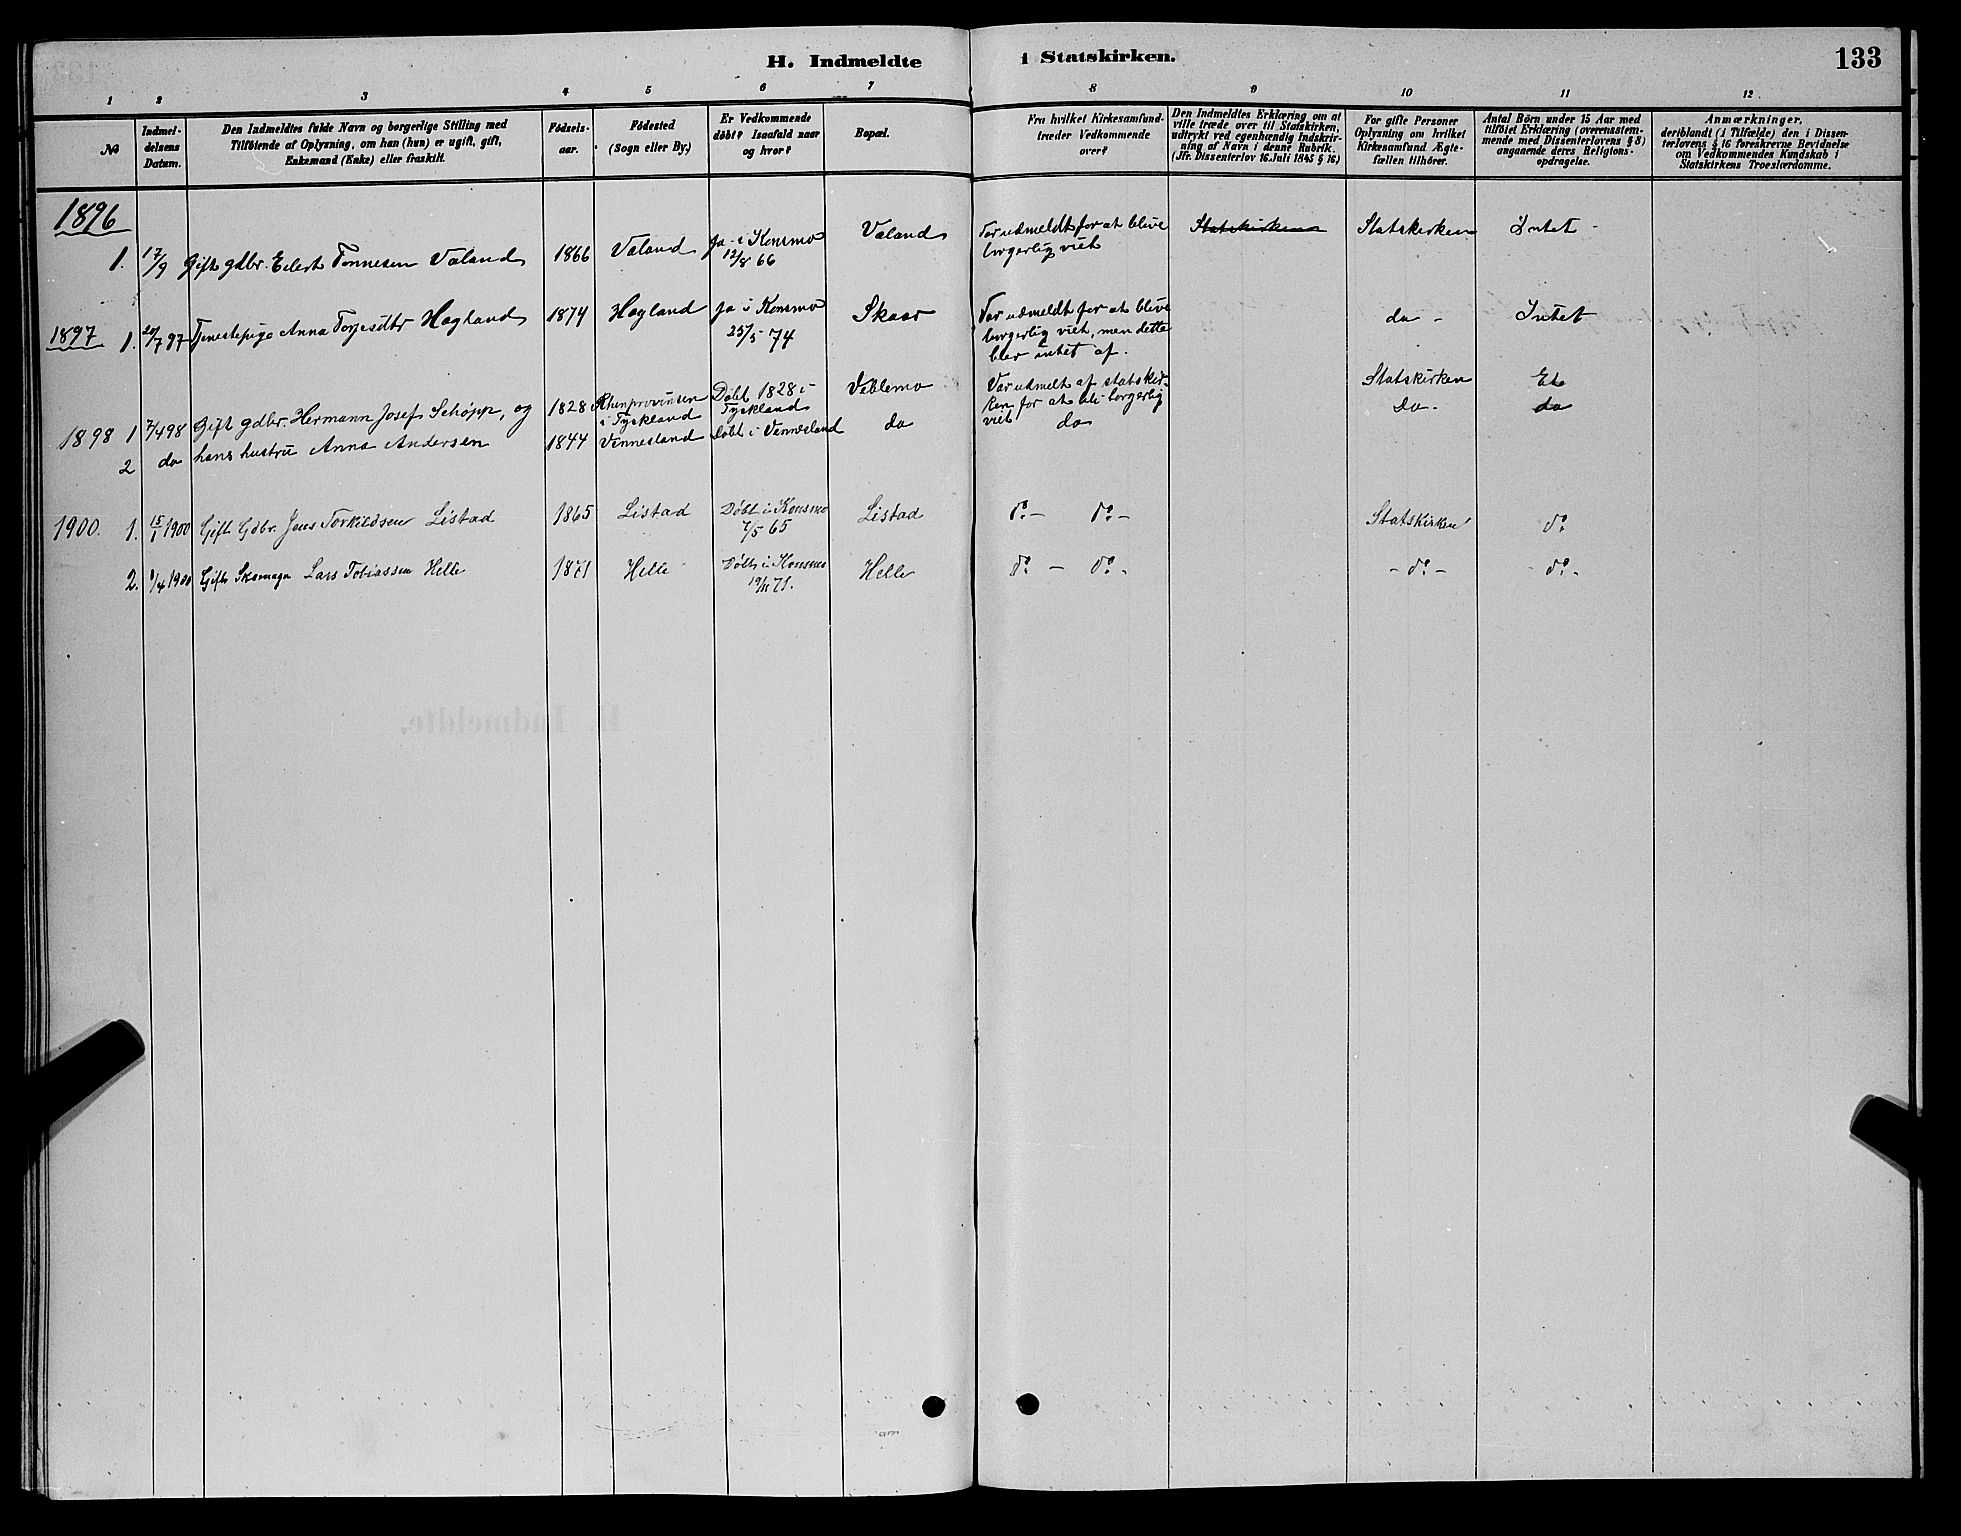 H. Indmeldte i Statskirken. 133
1 2 3 4 5 6 7 8 9 10 11 12
№
Indmel-
delsens
Datum.
Den Indmeldtes fulde Navn og borgerlige Stilling med
Tilföiende af Oplysning, om han (hun) er ugift, gift,
Enkemand (Enke) eller fraskilt.
Födsels-
aar.
Födested
(Sogn eller By.)
Er Vedkommende
döbt? Isaafald naar
og hvor?
Bopæl.
Fra hvilket Kirkesamfund
træder Vedkommende
over?
Den Indmeldtes Erklæring om at
ville træde over til Statskirken,
udtrykt ved egenhændig Indskriv-
ning af Navn i denne Rubrik.
(Jfr. Dissenterlov 16. Juli 1845 § 16)
For gifte Personer
Oplysning om hvilket
Kirkesamfund Ægte-
fællen tilhörer.
Antal Börn under 15 Aar med
tilföiet Erklæring (overensstem-
mende med Dissenterlovens § 8)
angaaende deres Religions-
opdragelse.
Anmærkninger,
deriblandt (i Tilfælde) den i Dissen-
terlovens § 16 foreskrevne Bevidnelse
om Vedkommendes Kundskab i
Statskirkens Troeslærdomme.
1896
1. 17/9 Gift gdbr. Eilert Tønnesen Valand 1866 Valand Ja - i Konsmo
12/8 66
Valand
Var udmeldt for at blive
borgerlig viet
Statskirken Statskirken Intet -
1897 1. 20/7 97 Tjenestepige Anna Torjesdtr Hagland 1874 Hagland Ja i Konsmo
25/5 - 74
Skaar
Var udmeldt for at blive
borgerlig viet, men dette
blev intet af.
do - Intet
1898 1 7/4 98 Gift gdbr. Hermann Josef Schöpp, og 1828 Rhinprovinsen
i Tyskland
Døbt 1828 i
Tyskland
Veblemo
Var udmelt af statskir-
ken for at bli borgerlig
viet
Statskirken Et
2 do hans hustru Anna Andersen 1844 Vennesland Døbt i Vennesland do do do - do
1900. 1. 15/1 1900 Gift Gdbr. Jens Torkildsen Listad 1865 Listad Døbt i Konsmo
7/5 65
Listad do - do - Statskirken do
2. 1/4 1900 Gift Skomager Lars Tobiassen Helle 1871 Helle Døbt i Konsmo
19/11 71.
Helle do - do - - do - - do -